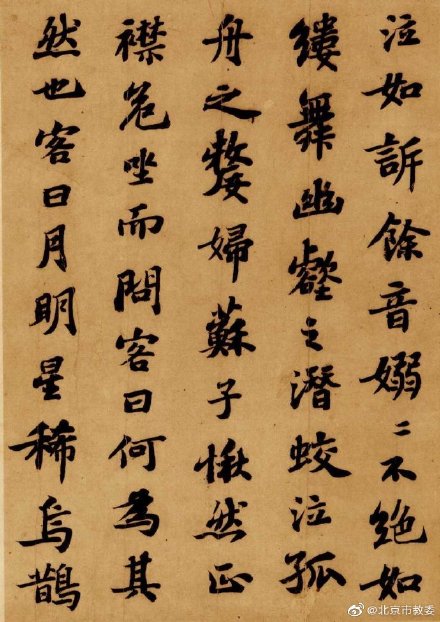 泣如訴餘音嫋〻不絶如
縷舞幽壑之潛蛟泣孤
舟之嫠婦蘇子愀然正
襟危坐而問客曰何為其
然也客曰月明星稀烏鵲
@北京市教委